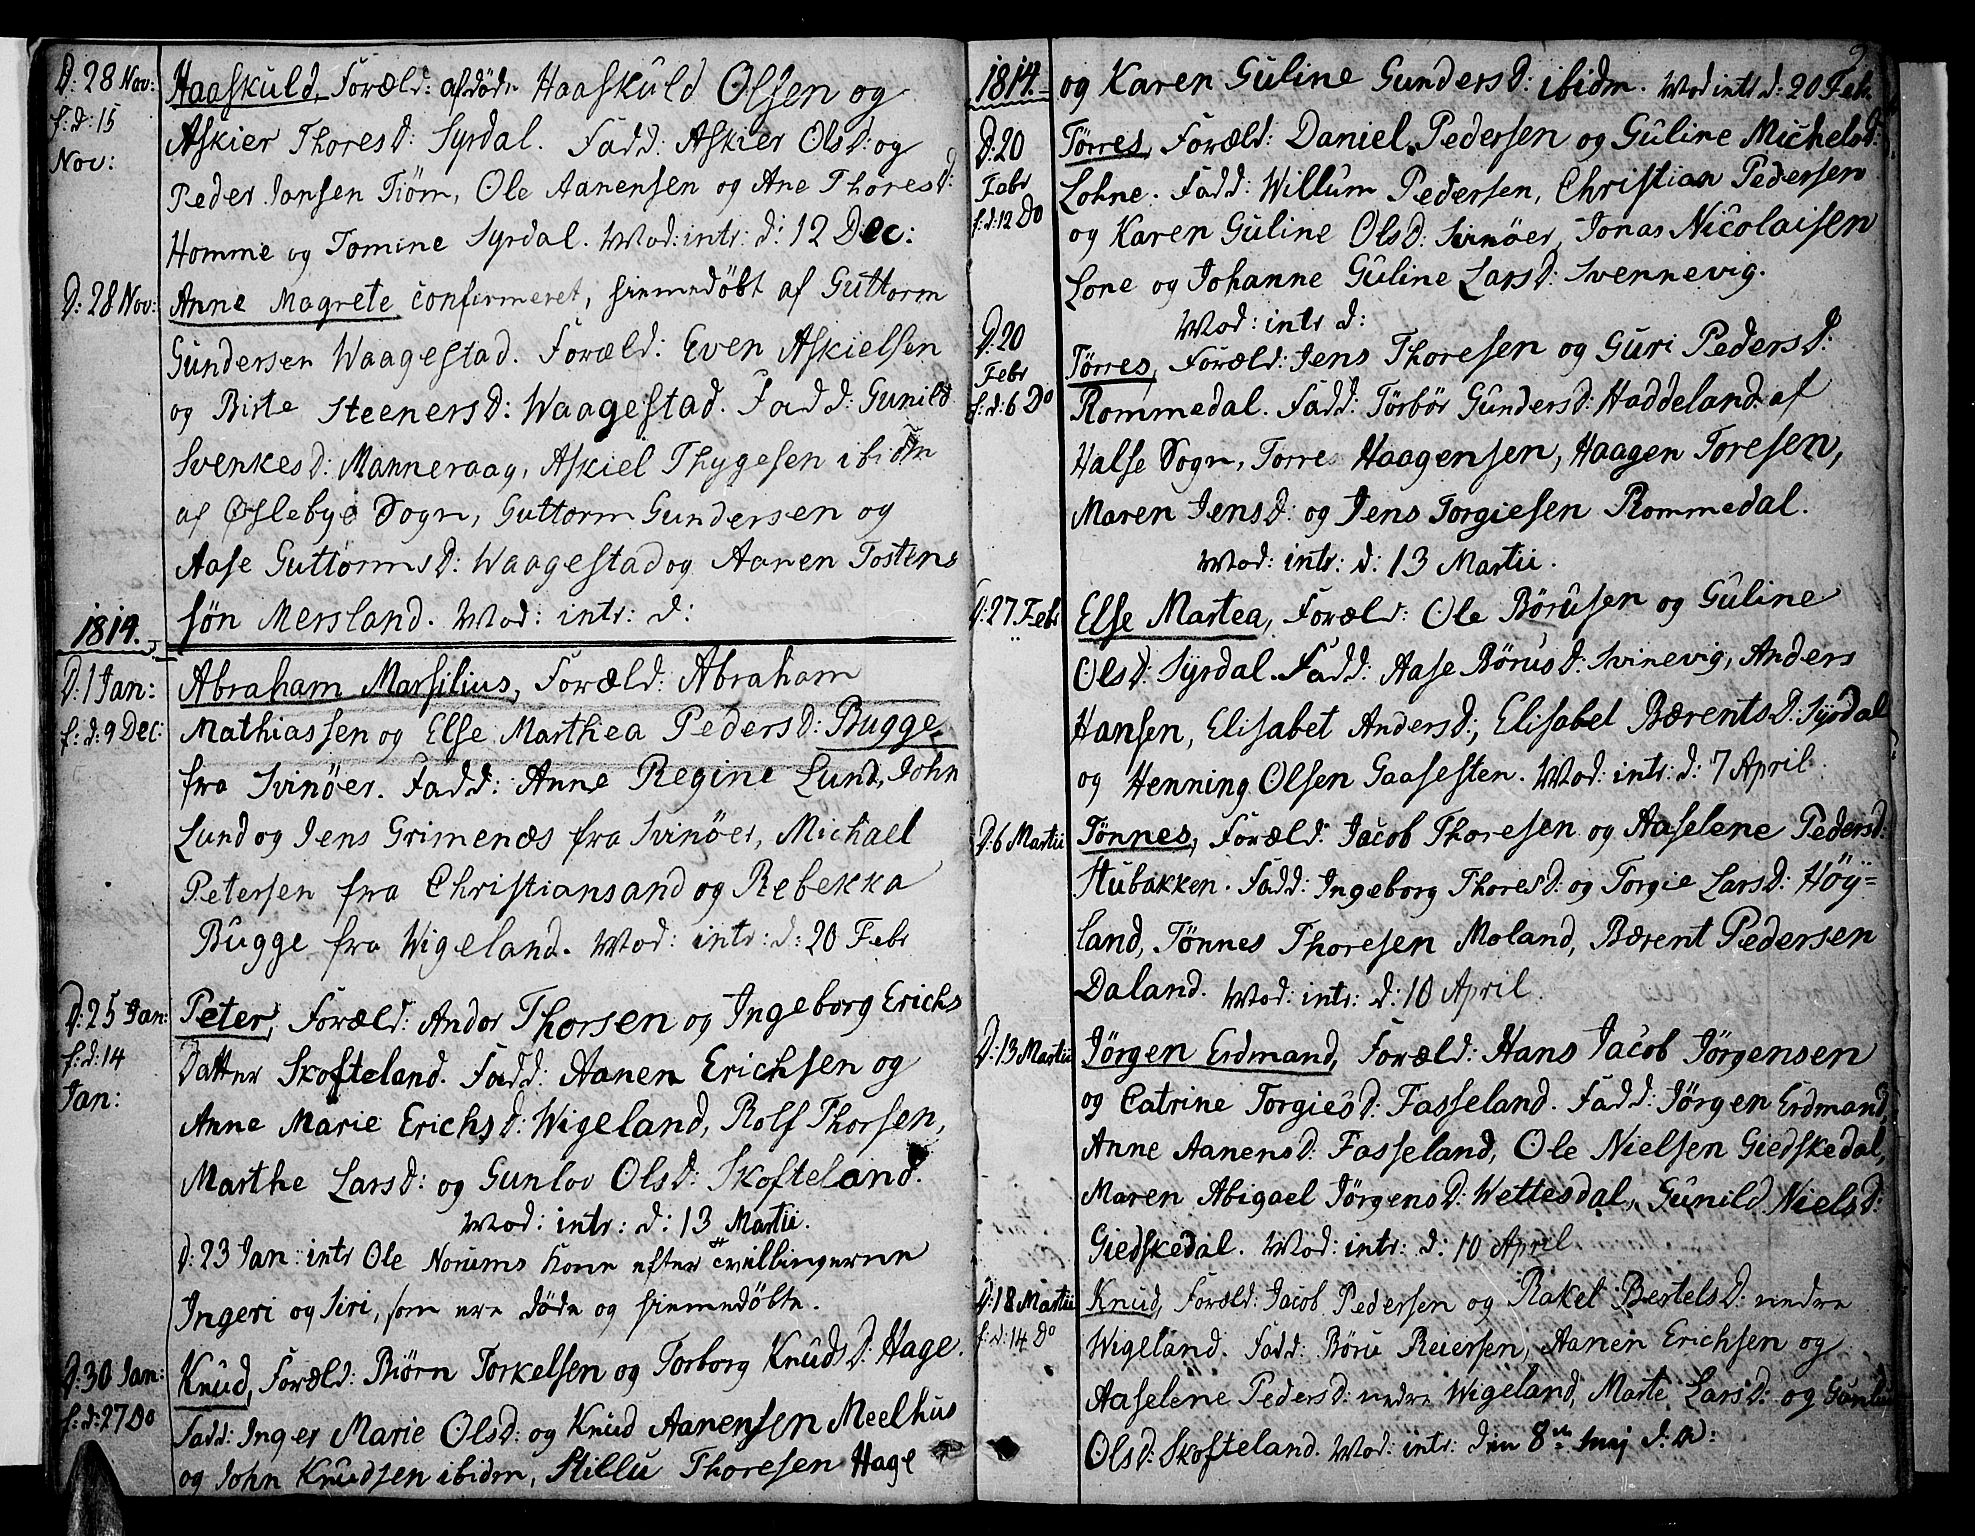 D: 28 Nov:
f: d: 15
Nov:
Haaskuld, Foræld: afdøde Haaskuld Olsen og
Askier Thoresd: Syrdal. Fadd: Askier Olsd: og
Peder Jansen Tiøm, Ole Aanensen og Ane Thoresd:
Homme og Tomine Syrdal. Mod: intr: d: 12 Dec:
D: 28 Nov:
Anne Magrete confirmeret, hiemmedøbt af Guttorm
Gundersen Waagestad. Foræld: Even Askielsen
og Birte Steenersd: Waagestad. Fadd: Gunild
Svenkesd: Manneraag, Askiel Thygesen ibidm
af Øslebye Sogn, Guttorm Gundersen og
Aase Guttormsd: Waagestad og Aanen Tostens
søn Mersland. Mod: intr: d:
1814.
D: 1 Jan:
f: d: 9 Dec:
Abraham Marsilius, Foræld: Abraham
Mathiassen og Else Marthea Pedersd: Bugge
fra Svinøer. Fadd: Anne Regine Lund, John
Lund og Jens Grimenæs fra Svinøer, Michael
Petersen fra Christiansand og Rebekka
Bugge fra Wigeland. Mod: intr: d: 20 Febr
D: 25 Jan:
f: d: 14
Jan:
Peter, Foræld: Andor Thorsen og Ingeborg Erichs
Datter Skofteland. Fadd: Aanen Erichsen og
Anne Marie Erichsd: Wigeland, Rolf Thorsen,
Marthe Larsd: og Gunlov Olsd: Skofteland.
Mod: intr: d: 13 Martii.
D: 23 Jan: intr Ole Norums Kone efter Tvillingerne
Ingeri og Siri, som ere døde og hiemmedøbte.
D: 30 Jan:
f: d: 27 Do
Knud, Foræld: Biørn Torkelsen og Torborg Knudsd: Hage.
Fadd: Inger Marie Olsd: og Knud Aanensen Meelhus
og John Knudsen ibidm, Stillu Thoresen Hage
1814.
og Karen Guline Gundersd: ibidm. Mod intr d: 20 Febr.
D: 20
Febr
f: d: 12 Do
Tørres, Foræld: Daniel Pedersen og Guline Michelsd:
Lohne. Fadd: Willum Pedersen, Christian Pedersen
og Karen Guline Olsd: Svinøer, Jonas Nicolaisen
Lone og Johanne Guline Larsd: Svennevig.
Mod: intr d:
D: 20
Febr
f: d: 6 Do
Tørres, Foræld: Jens Thoresen og Guri Pedersd:
Rommedal. Fadd: Törbör Gundersd: Haddeland af
Halse Sogn, Torres Haagensen, Haagen Toresen,
Maren Jensd: og Jens Torgiesen Rommedal.
Mod: intr: d: 13 Martii.
D: 27 Febr
Else Martea, Foræld: Ole Börusen og Guline
Olsd: Syrdal. Fadd: Aase Börusd: Svinevig, Anders
Hansen, Elisabet Andersd:, Elisabet Bærentsd: Syrdal
og Henning Olsen Gaasesten. Mod: intr: d: 7 April.
D: 6 Martii
Tønnes, Foræld: Jacob Thoresen og Aaselene Pedersd:
Stubakken. Fadd: Ingeborg Thoresd: og Torgie Larsd: Höy=
land, Tönnes Thoresen Moland, Bærent Pedersen
Daland. Mod: intr: d: 10 April.
D: 13 Martii
Jørgen Erdmand, Foræld: Hans Jacob Jørgensen
og Catrine Torgiesd: Fasseland. Fadd: Jørgen Erdmand,
Anne Aanensd: Fasseland, Ole Nielsen Giedskedal,
Maren Abigael Jörgensd: Wettesdal, Gunild Nielsd:
Giedskedal. Mod: intr: d: 10 April.
D: 18 Martii
f: d: 14 Do
Knud, Foræld: Jacob Pedersen og Rakel Bertelsd: nedre
Wigeland. Fadd: Böru Reiersen, Aanen Erichsen og
Aaselene Pedersd: nedre Wigeland, Marte Larsd: og Gunlu
Olsd: Skofteland. Mod: intr: den 8de Maj d: a: